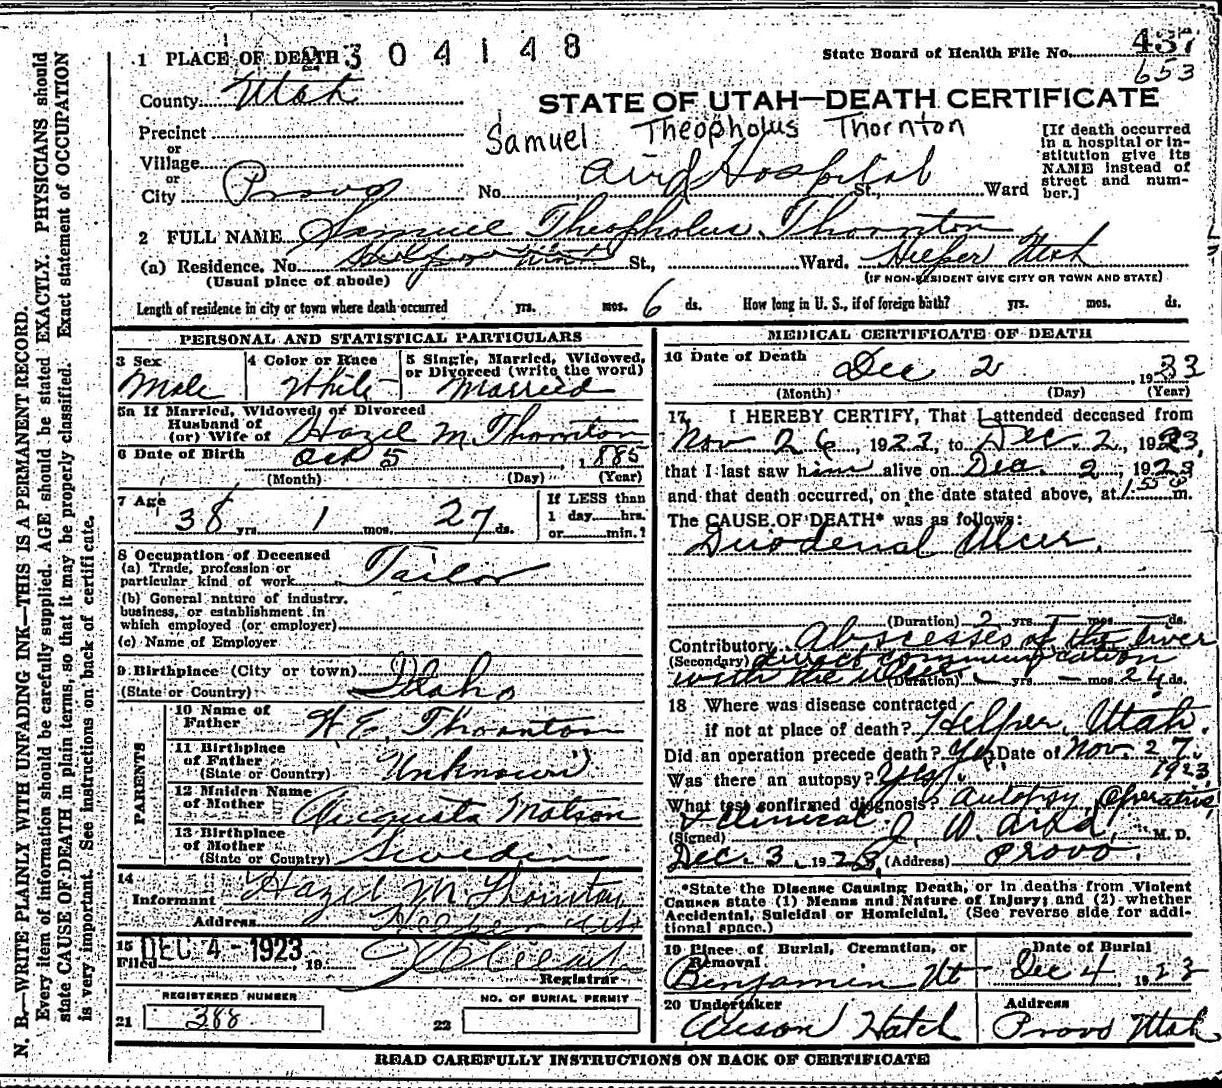 N. B.—WRITE PLAINLY WITH UNFADING INK—THIS IS A PERMANENT RECORD.
Every item of information should be carefully supplied. AGE should be stated EXACTLY. PHYSICIANS should
state CAUSE OF DEATH in plain terms, so that it may be properly classified. Exact statement of OCCUPATION
is very important. See instructions on back of certificate.
1 PLACE OF DEATH 2304148
State Board of Health File No. 437
653
County Utah
STATE OF UTAH—DEATH CERTIFICATE
Samuel Theopholus Thornton
Precinct
or
Village
or
City Provo
No. Aird Hospital St., Ward
[If death occurred
in a hospital or in-
stitution give its
NAME instead of
street and num-
ber.]
2 FULL NAME Samuel Theopholus Thornton
(a) Residence. No. St., Ward. Helper Utah
(Usual place of abode)
(IF NON-RESIDENT GIVE CITY OR TOWN AND STATE)
Length of residence in city or town where death occurred yrs. mos. 6 ds. How long in U. S., if of foreign birth? yrs. mos. ds.
PERSONAL AND STATISTICAL PARTICULARS
3 Sex
Male
4 Color or Race
White
5 Single, Married, Widowed,
or Divorced (write the word)
Married
5a If Married, Widowed, or Divorced
Husband of
(or) Wife of Hazel M. Thornton
6 Date of Birth Oct 5, 1885
(Month) (Day) (Year)
7 Age
38 yrs. 1 mos. 27 ds.
If LESS than
1 day hrs.
or min.?
8 Occupation of Deceased
(a) Trade, profession or
particular kind of work Tailor
(b) General nature of industry,
business, or establishment in
which employed (or employer)
(c) Name of Employer
9 Birthplace (City or town)
(State or Country) Idaho
PARENTS
10 Name of
Father H. E. Thornton
11 Birthplace
of Father
(State or Country) Unknown
12 Maiden Name
of Mother Augusta Matson
13 Birthplace
of Mother
(State or Country) Swedin
14
Informant Hazel M Thornton
Address Helper Utah
15 DEC 4 - 1923
Filed , 19
Registrar
REGISTERED NUMBER
21 388
NO. OF BURIAL PERMIT
22
MEDICAL CERTIFICATE OF DEATH
16 Date of Death
Dec 2, 1923
(Month) (Day) (Year)
17. I HEREBY CERTIFY, That I attended deceased from
Nov. 26, 1923, to Dec. 2, 1923,
that I last saw him alive on Dec. 2, 1923
and that death occurred, on the date stated above, at m.
The CAUSE OF DEATH* was as follows:
Duodenal Ulcer.
(Duration) 2 yrs. mos. ds.
Contributory Abscesses of the liver
(Secondary) direct communication
with the ulcer (Duration) - yrs. - mos. 24 ds.
18 Where was disease contracted
if not at place of death? Helper, Utah.
Did an operation precede death? Yes Date of Nov. 27,
1923
Was there an autopsy? Yes
What test confirmed diagnosis? Autopsy, Operative,
& Clinical.
(Signed) J. W. Aird, M. D.
Dec. 3, 1923, (Address) Provo.
*State the Disease Causing Death, or in deaths from Violent
Causes state (1) Means and Nature of Injury; and (2) whether
Accidental, Suicidal or Homicidal. (See reverse side for addi-
tional space.)
19 Place of Burial, Cremation, or
Removal
Benjamin Ut
Date of Burial
Dec 4 1923
20 Undertaker
Anson Hatch
Address
Provo Utah
READ CAREFULLY INSTRUCTIONS ON BACK OF CERTIFICATE